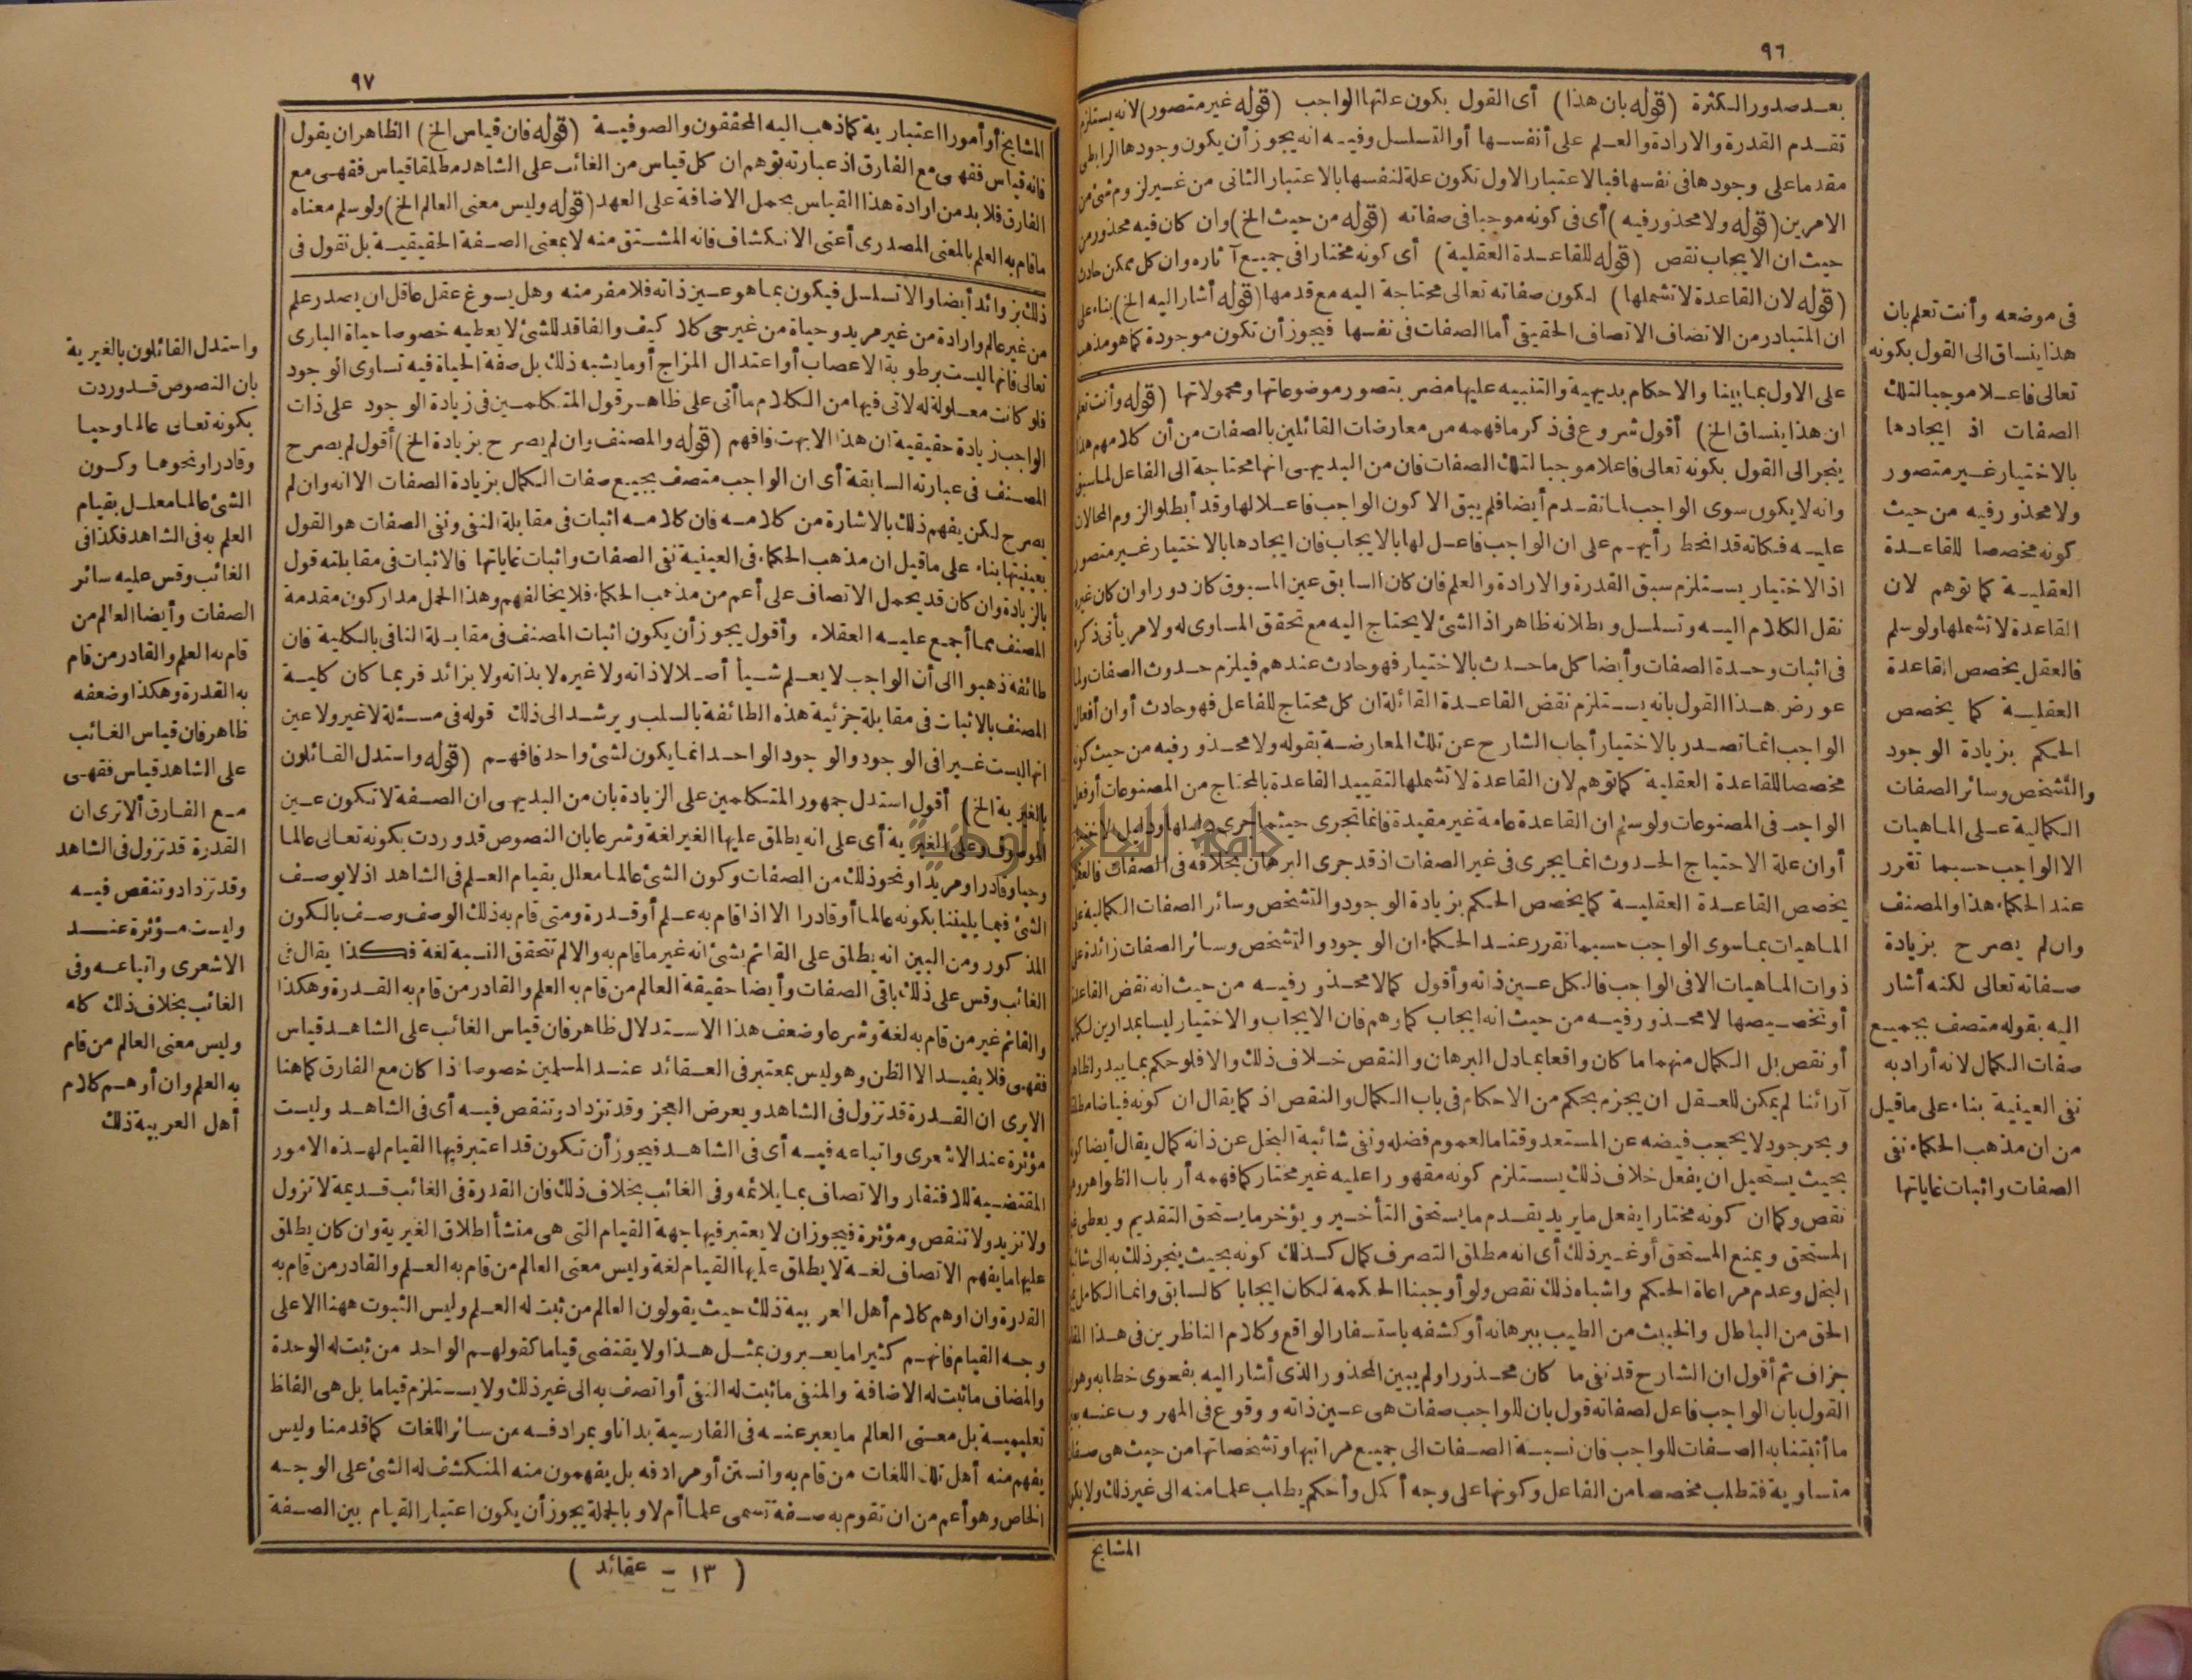 ٩٦
بعد صدور الكثرة (قوله بان هذا) أى القول بكون علتها الواجب (قوله غير متصور) لانه يستلزم
تقدم القدرة والارادة والعلم على أنفسها أو التسلسل وفيه انه يجوز أن يكون وجودها الرابطى
مقدما على وجودها فى نفسها فبالاعتبار الاول تكون علة لنفسها بالاعتبار الثانى من غير لزوم شئ من
الامرين (قوله ولا محذور فيه) أى فى كونه موجبا فى صفاته (قوله من حيث الخ) وان كان فيه محذور من
حيث ان الايجاب نقص (قوله للقاعدة العقلية) أى كونه مختارا فى جميع آثاره وان كل ممكن حادث
(قوله لان القاعدة لا تشملها) لكون صفاته تعالى محتاجة اليه مع قدمها (قوله أشار اليه الخ) بناء على
ان المتبادر من الاتصاف الاتصاف الحقيقى أما الصفات فى نفسها فيجوز أن تكون موجودة كما هو مذهب
على الاول بما بينا والاحكام بديهية والتنبيه عليها مضر بتصور موضوعاتها ومحمولاتها (قوله وأنت تعلم
ان هذا ينساق الخ) أقول شروع فى ذكر ما فهمه من معارضات القائلين بالصفات من أن كلامهم هذا
ينجر الى القول بكونه تعالى فاعلا موجبا لتلك الصفات فان من البديهى انها محتاجة الى الفاعل لما سبق
وانه لا يكون سوى الواجب لما تقدم أيضا فلم يبق الا كون الواجب فاعلا لها وقد أبطلوا لزوم المحالات
عليه فكانه قد انحط رأيهم على ان الواجب فاعل لها بالايجاب فان ايجادها بالاختيار غير متصور
اذ الاختيار يستلزم سبق القدرة والارادة والعلم فان كان السابق عين المسبوق كان دورا وان كان غيره
نقل الكلام اليه وتسلسل وبطلانه ظاهر اذ الشئ لا يحتاج اليه مع تحقق المساوى له ولامر يأتى ذكره
فى اثبات وحدة الصفات وأيضا كل ما حدث بالاختيار فهو حادث عندهم فيلزم حدوث الصفات ولما
عورض هذا القول بانه يستلزم نقض القاعدة القائلة ان كل محتاج للفاعل فهو حادث أو ان أفعال
الواجب انما تصدر بالاختيار أجاب الشارح عن تلك المعارضة بقوله ولا محذور فيه من حيث كونه
مخصصا للقاعدة العقلية كما توهم لان القاعدة لا تشملها لتقييد القاعدة بالمحتاج من المصنوعات أو فعل
الواجب فى المصنوعات ولو سلم ان القاعدة عامة غير مقيدة فانما تجرى حيثما جرى دليلها ودليل الاختيار
أو ان علة الاحتياج الحدوث انما يجرى فى غير الصفات اذ قد جرى البرهان بخلافه فى الصفات فالعقل
يخصص القاعدة العقلية كما يخصص الحكم بزيادة الوجود والتشخص وسائر الصفات الكمالية على
الماهيات بما سوى الواجب حسبما تقرر عند الحكماء ان الوجود والتشخص وسائر الصفات زائدة على
ذوات الماهيات الا فى الواجب فالكل عين ذاته وأقول كما لا محذور فيه من حيث انه نقض القاعدة
أو تخصيصها لا محذور فيه من حيث انه ايجاب كما وهم فان الايجاب والاختيار ليسا بمدارين لكمال
أو نقص بل الكمال منهما ما كان واقعا بما دل البرهان والنقص خلاف ذلك والا فلو حكم بما يبدو لظاهر
آرائنا لم يمكن للعقل ان يجزم بحكم من الاحكام فى باب الكمال والنقص اذ كما يقال ان كونه فياضا مطلقا
وبحر جود لا يحجب فيضه عن المستعد وقتا ما لعموم فضله ونفى شائبة البخل عن ذاته كمال يقال أيضا كونه
بحيث يستحيل ان يفعل خلاف ذلك يستلزم كونه مقهورا عليه غير مختار كما فهمه أرباب الظواهر وهو
نقص وكما ان كونه مختارا يفعل ما يريد يقدم ما يستحق التأخير ويؤخر ما يستحق التقديم ويعطى غير
المستحق ويمنع المستحق أو غير ذلك أى انه مطلق التصرف كمال كذلك كونه بحيث ينجر ذلك به الى شائبة
البخل وعدم مراعاة الحكم واشباه ذلك نقص ولو أوجبنا الحكمة لكان ايجابا كالسابق وانما الكامل
الحق من الباطل والخبيث من الطيب ببرهانه أو كشفه باستسفار الواقع وكلام الناظرين فى هذا المقام
جزاف ثم أقول ان الشارح قد نفى ما كان محذورا ولم يبين المحذور الذى أشار اليه بفحوى خطابه وهو
القول بان الواجب فاعل لصفاته قول بان للواجب صفات هى عين ذاته ووقوع فى المهروب عنه
ما أثبتنا به الصفات للواجب فان نسبة الصفات الى جميع مراتبها وتشخصاتها من حيث هى صفات
متساوية فتطلب مخصصا من الفاعل وكونها على وجه أكمل وأحكم يطلب علما منه الى غير ذلك ولا يكون
المشايخ
فى موضعه وأنت تعلم بان
هذا ينساق الى القول بكونه
تعالى فاعلا موجبا لتلك
الصفات اذ ايجادها
بالاختيار غير متصور
ولا محذور فيه من حيث
كونه مخصصا للقاعدة
العقلية كما توهم لان
القاعدة لا تشملها ولو سلم
فالعقل يخصص القاعدة
العقلية كما يخصص
الحكم بزيادة الوجود
والتشخص وسائر الصفات
الكمالية على الماهيات
الا الواجب حسبما تقرر
عند الحكماء هذا والمصنف
وان لم يصرح بزيادة
صفاته تعالى لكنه أشار
اليه بقوله متصف بجميع
صفات الكمال لانه أراد به
نفى العينية بناء على ما قيل
من ان مذهب الحكماء نفى
الصفات واثبات غاياتها
٩٧
المشايخ أو أمورا اعتبارية كما ذهب اليه المحققون والصوفية (قوله فان قياس الخ) الظاهر ان يقول
فانه قياس فقهى مع الفارق اذ عبارته توهم ان كل قياس من الغائب على الشاهد مطلقا قياس فقهى مع
الفارق فلا بد من ارادة هذا القياس بحمل الاضافة على العهد (قوله وليس معنى العالم الخ) ولو سلم معناه
ما قام به العلم بالمعنى المصدرى أعنى الانكشاف فانه المشتق منه لا بمعنى الصفة الحقيقية بل نقول فى
ذلك بزوائد أيضا والا تسلسل فيكون بما هو عين ذاته فلا مفر منه وهل يسوغ عقل عاقل ان يصدر علم
من غير عالم وارادة من غير مريد وحياة من غير حى كلا كيف والفاقد للشئ لا يعطيه خصوصا حياة البارى
تعالى فانها ليست برطوبة الاعصاب أو اعتدال المزاج أو ما يشبه ذلك بل صفة الحياة فيه تساوى الوجود
فلو كانت معلولة له لاتى فيها من الكلام ما أتى على ظاهر قول المتكلمين فى زيادة الوجود على ذات
الواجب زيادة حقيقية ان هذا الا بهت فافهم (قوله والمصنف وان لم يصرح بزيادة الخ) أقول لم يصرح
المصنف فى عبارته السابقة أى ان الواجب متصف بجميع صفات الكمال بزيادة الصفات الا انه وان لم
يصرح لكن يفهم ذلك بالاشارة من كلامه فان كلامه اثبات فى مقابلة النفى ونفى الصفات هو القول
بعينيتها بناء على ما قيل ان مذهب الحكماء فى العينية نفى الصفات واثبات غاياتها فالاثبات فى مقابلته قول
بالزيادة وان كان قد يحمل الاتصاف على أعم من مذهب الحكماء فلا يخالفهم وهذا الحمل مدار كون مقدمة
المصنف مما أجمع عليه العقلاء وأقول يجوز أن يكون اثبات المصنف فى مقابلة النافى بالكلية فان
طائفة ذهبوا الى أن الواجب لا يعلم شيأ أصلا لا ذاته ولا غيره لا بذاته ولا بزائد فربما كان كلية
المصنف بالاثبات فى مقابلة جزئية هذه الطائفة بالسلب ويرشد الى ذلك قوله فى مسئلة لا غير ولا عين
انها ليست غيرا فى الوجود والوجود الواحد انما يكون لشئ واحد فافهم (قوله واستدل القائلون
بالغيرية الخ) أقول استدل جمهور المتكلمين على الزيادة بان من البديهى ان الصفة لا تكون عين
الموصوف وعلى الغيرية أى على انه يطلق عليها الغير لغة وشرعا بان النصوص قد وردت بكونه تعالى عالما
وحيا وقادرا ومريدا ونحو ذلك من الصفات وكون الشئ عالما معلل بقيام العلم فى الشاهد اذ لا يوصف
الشئ فيما يليننا بكونه عالما أو قادرا الا اذا قام به علم أو قدرة ومتى قام به ذلك الوصف وصف بالكون
المذكور ومن البين انه يطلق على القائم بشئ انه غير ما قام به والا لم تتحقق النسبة لغة فكذا يقال فى
الغائب وقس على ذلك باقى الصفات وأيضا حقيقة العالم من قام به العلم والقادر من قام به القدرة وهكذا
والقائم غير من قام به لغة وشرعا وضعف هذا الاستدلال ظاهر فان قياس الغائب على الشاهد قياس
فقهى فلا يفيد الا الظن وهو ليس بمعتبر فى العقائد عند المسلمين خصوصا اذا كان مع الفارق كما هنا
الا يرى ان القدرة قد تزول فى الشاهد ويعرض العجز وقد تزداد وتنقص فيه أى فى الشاهد وليست
مؤثرة عند الاشعرى واتباعه فيه أى فى الشاهد فيجوز أن تكون قد اعتبر فيها القيام لهذه الامور
المقتضية للافتقار والاتصاف بما يلائمه وفى الغائب بخلاف ذلك فان القدرة فى الغائب قديمة لا تزول
ولا تزيد ولا تنقص ومؤثرة فيجوز ان لا يعتبر فيها جهة القيام التى هى منشأ اطلاق الغيرية وان كان يطلق
عليها ما يفهم الاتصاف لغة لا يطلق عليها القيام لغة وليس معنى العالم من قام به العلم والقادر من قام به
القدرة وان اوهم كلام أهل العربية ذلك حيث يقولون العالم من ثبت له العلم وليس الثبوت ههنا الا على
وجه القيام فانهم كثيرا ما يعبرون بمثل هذا ولا يقتضى قياما كقولهم الواحد من ثبت له الوحدة
والمضاف ما ثبت له الاضافة والمنفى ما ثبت له النفى أو اتصف به الى غير ذلك ولا يستلزم قياما بل هى الفاظ
تعليمية بل معنى العالم ما يعبر عنه فى الفارسية بدانا وبمرادفه من سائر اللغات كما قدمنا وليس
يفهم منه أهل تلك اللغات من قام به دانستن أو مرادفه بل يفهمون منه المنكشف له الشئ على الوجه
الخاص وهو أعم من ان تقوم به صفة تسمى علما أم لا وبالجملة يجوز أن يكون اعتبار القيام بين الصفة
( ١٣ - عقائد )
واستدل القائلون بالغيرية
بان النصوص قد وردت
بكونه تعالى عالما وحيا
وقادرا ونحوها وكون
الشئ عالما معلل بقيام
العلم به فى الشاهد فكذا فى
الغائب وقس عليه سائر
الصفات وأيضا العالم من
قام به العلم والقادر من قام
به القدرة وهكذا وضعفه
ظاهر فان قياس الغائب
على الشاهد قياس فقهى
مع الفارق ألا ترى ان
القدرة قد تزول فى الشاهد
وقد تزداد وتنقص فيه
وليست مؤثرة عند
الاشعرى واتباعه وفى
الغائب بخلاف ذلك كله
وليس معنى العالم من قام
به العلم وان أوهم كلام
أهل العربية ذلك
جامعة النجاح الوطنية